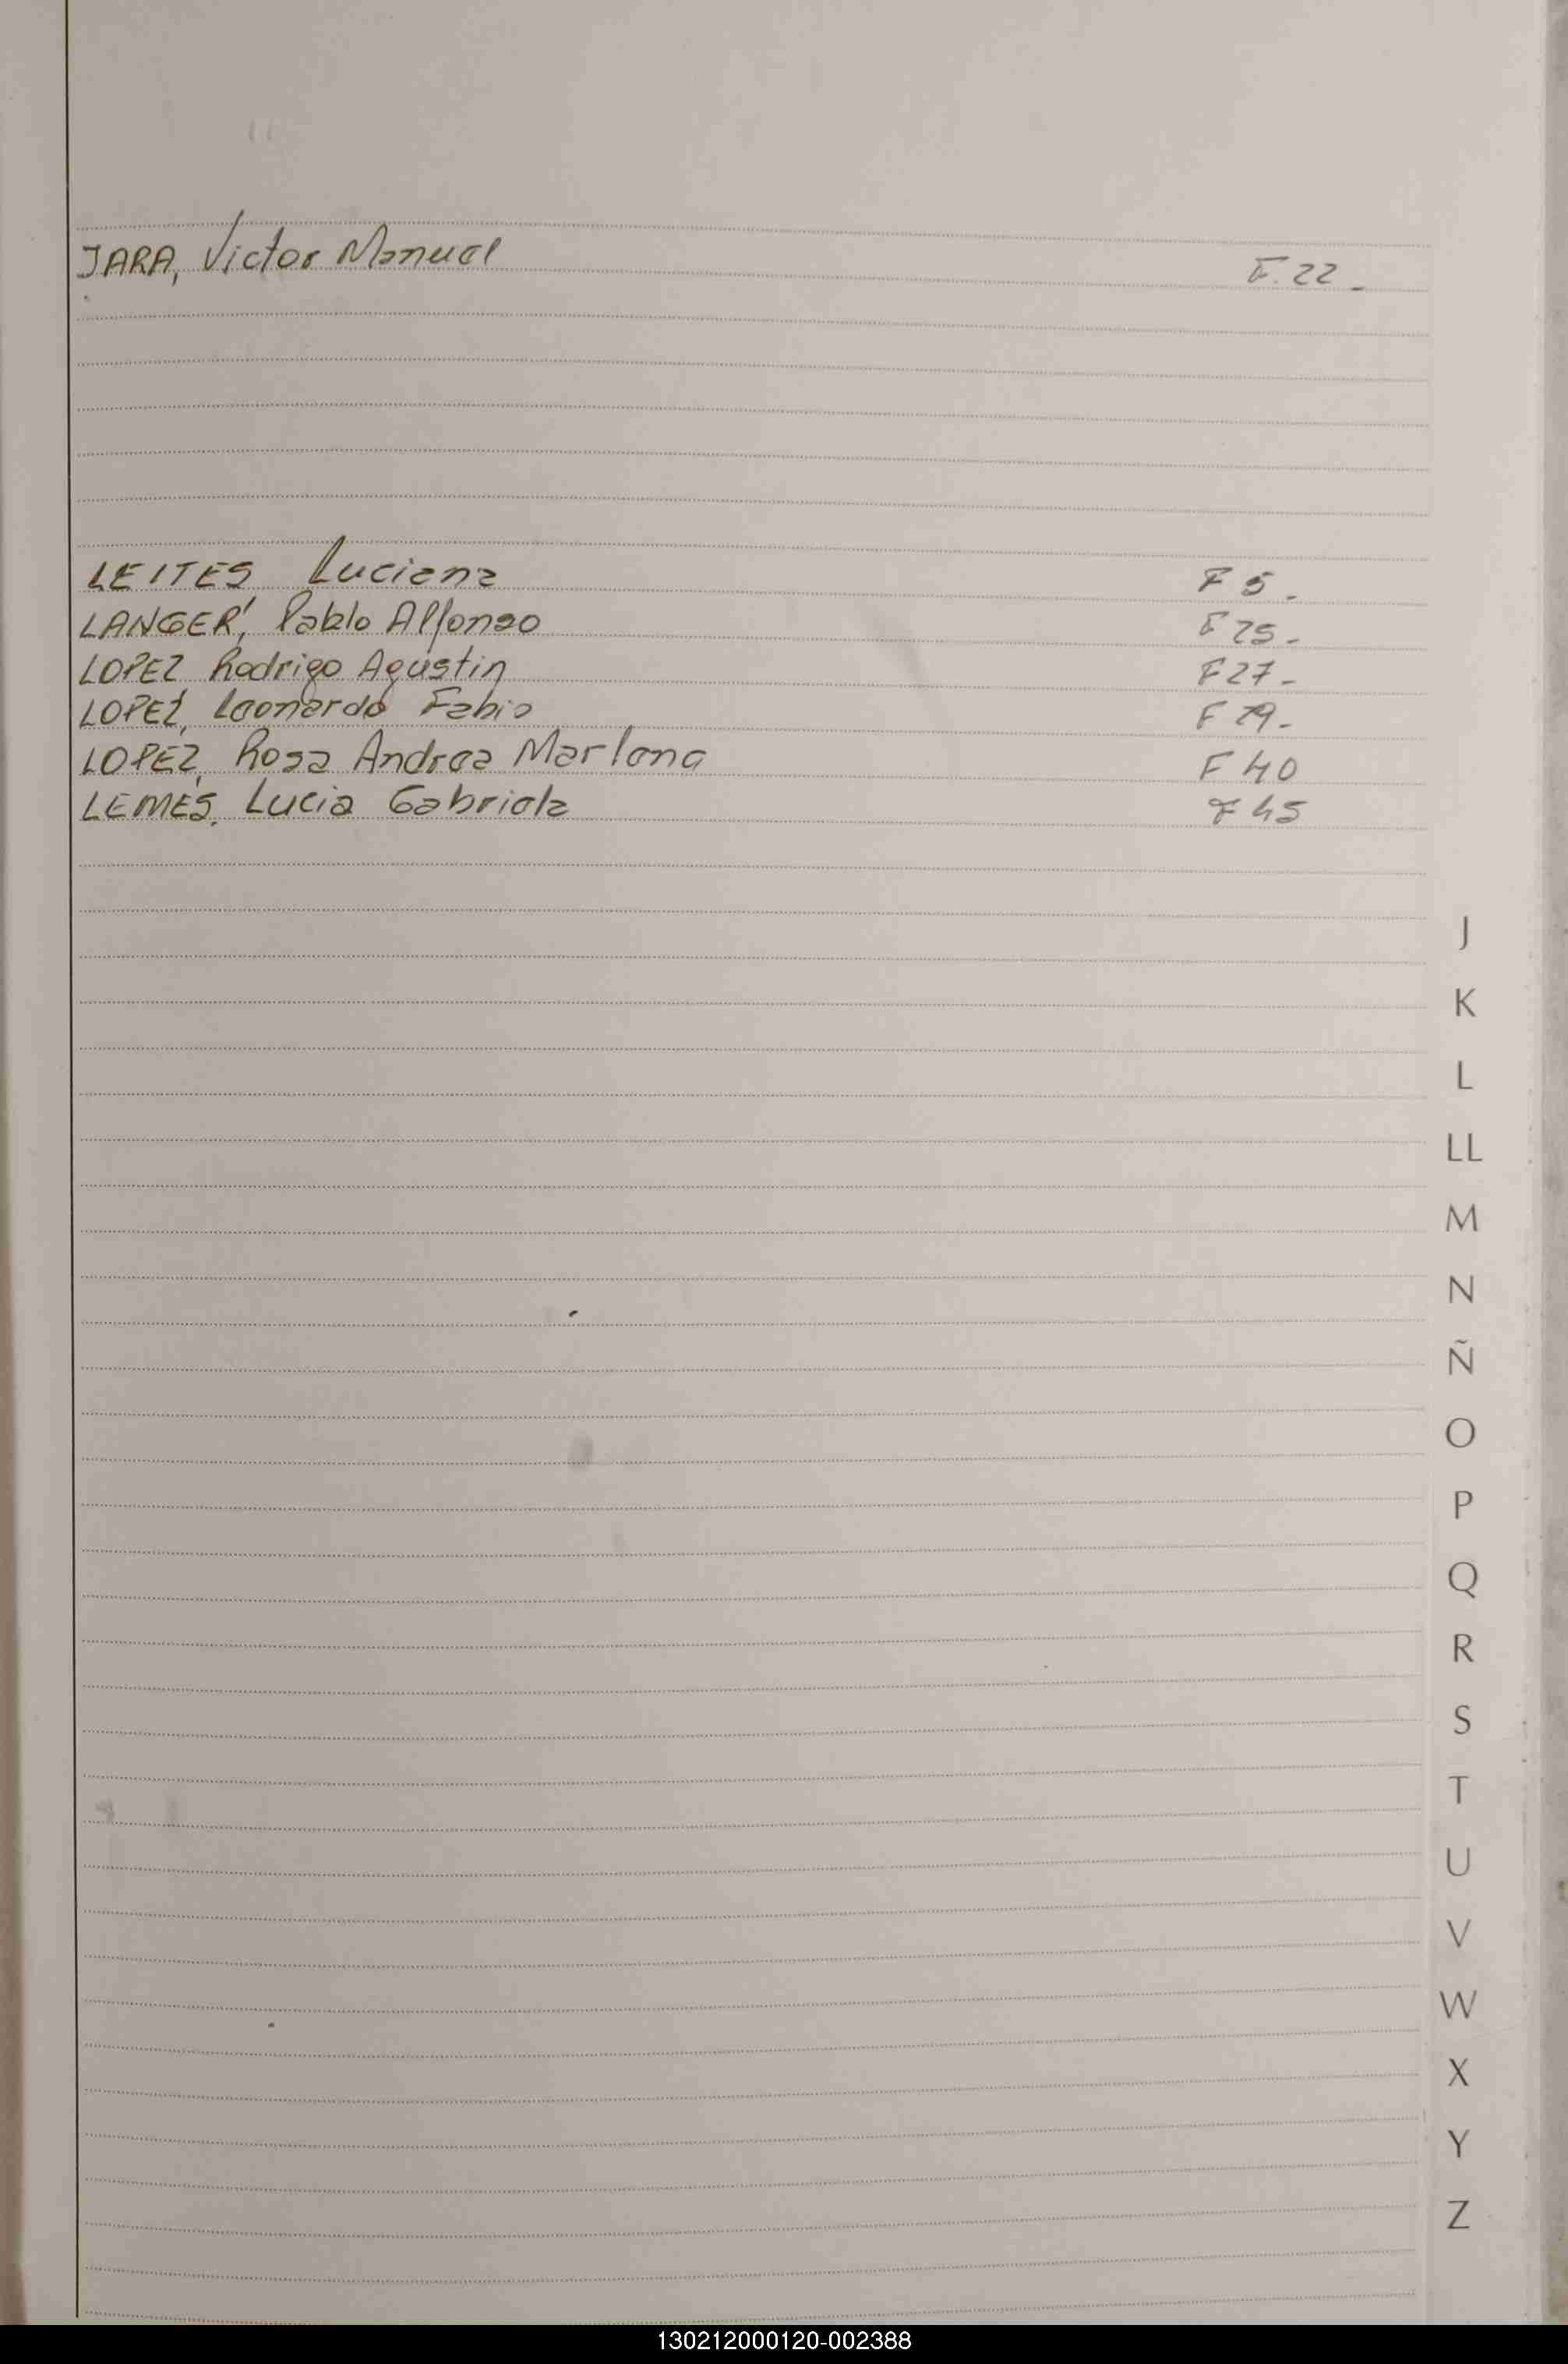 JARA, Victor Manuel F. 22 -
LEITES Luciana F 5 -
LANGER, Pablo Alfonso F 25 -
LOPEZ Rodrigo Agustin F 27 -
LOPEZ, Leonardo Fabio F 29 -
LOPEZ, Rosa Andrea Marlene F 40
LEMES, Lucia Gabriela F 45
J
K
L
LL
M
N
Ñ
O
P
Q
R
S
T
U
V
W
X
Y
Z
130212000120-002388